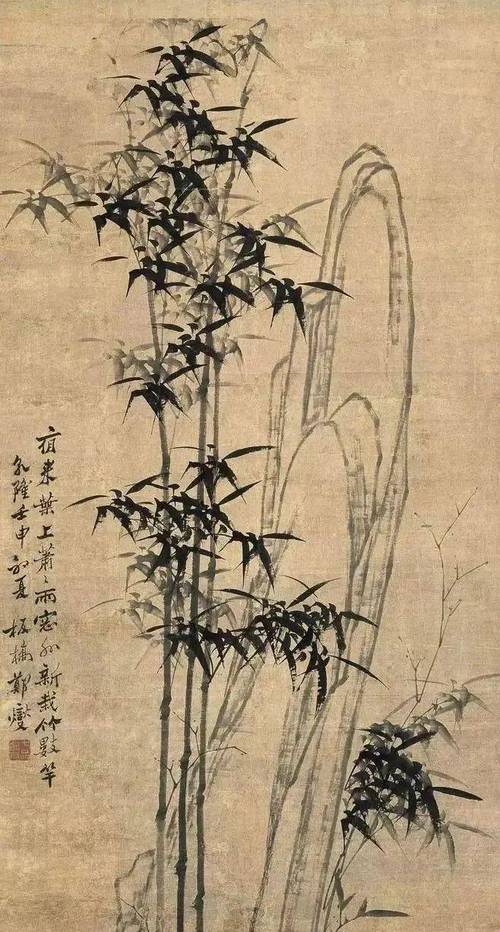 夜来葉上蕭〻雨窓外新栽竹數竿
乾隆壬申初夏板橋鄭燮